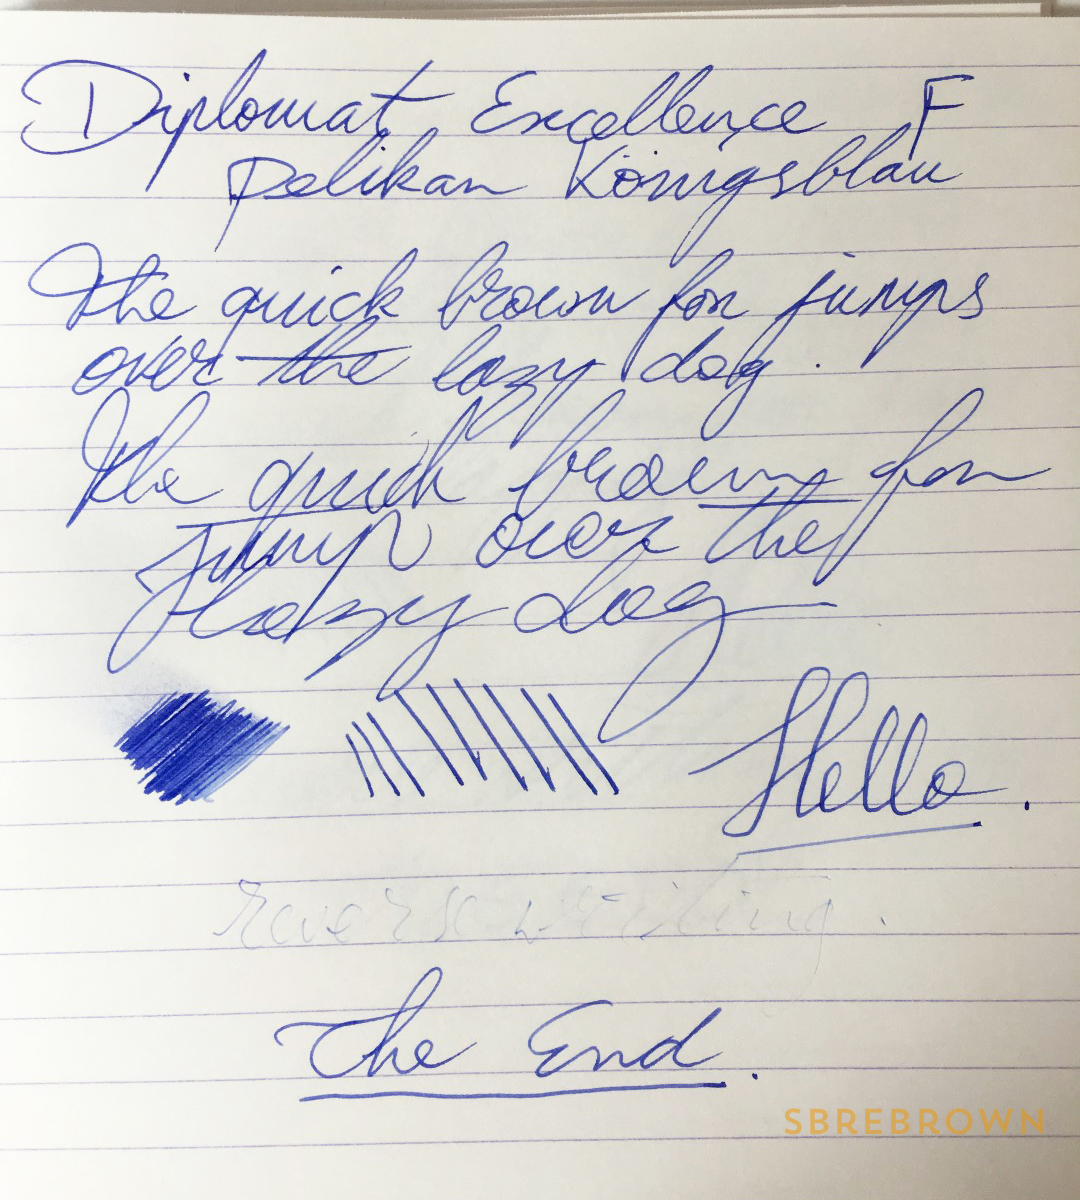 Diplomat Excellence F
Pelikan Königsblau
The quick brown fox jumps
over the lazy dog.
The quick brown fox
jumps over the
lazy dog
Hello.
reverse writing.
The End.
SBREBROWN